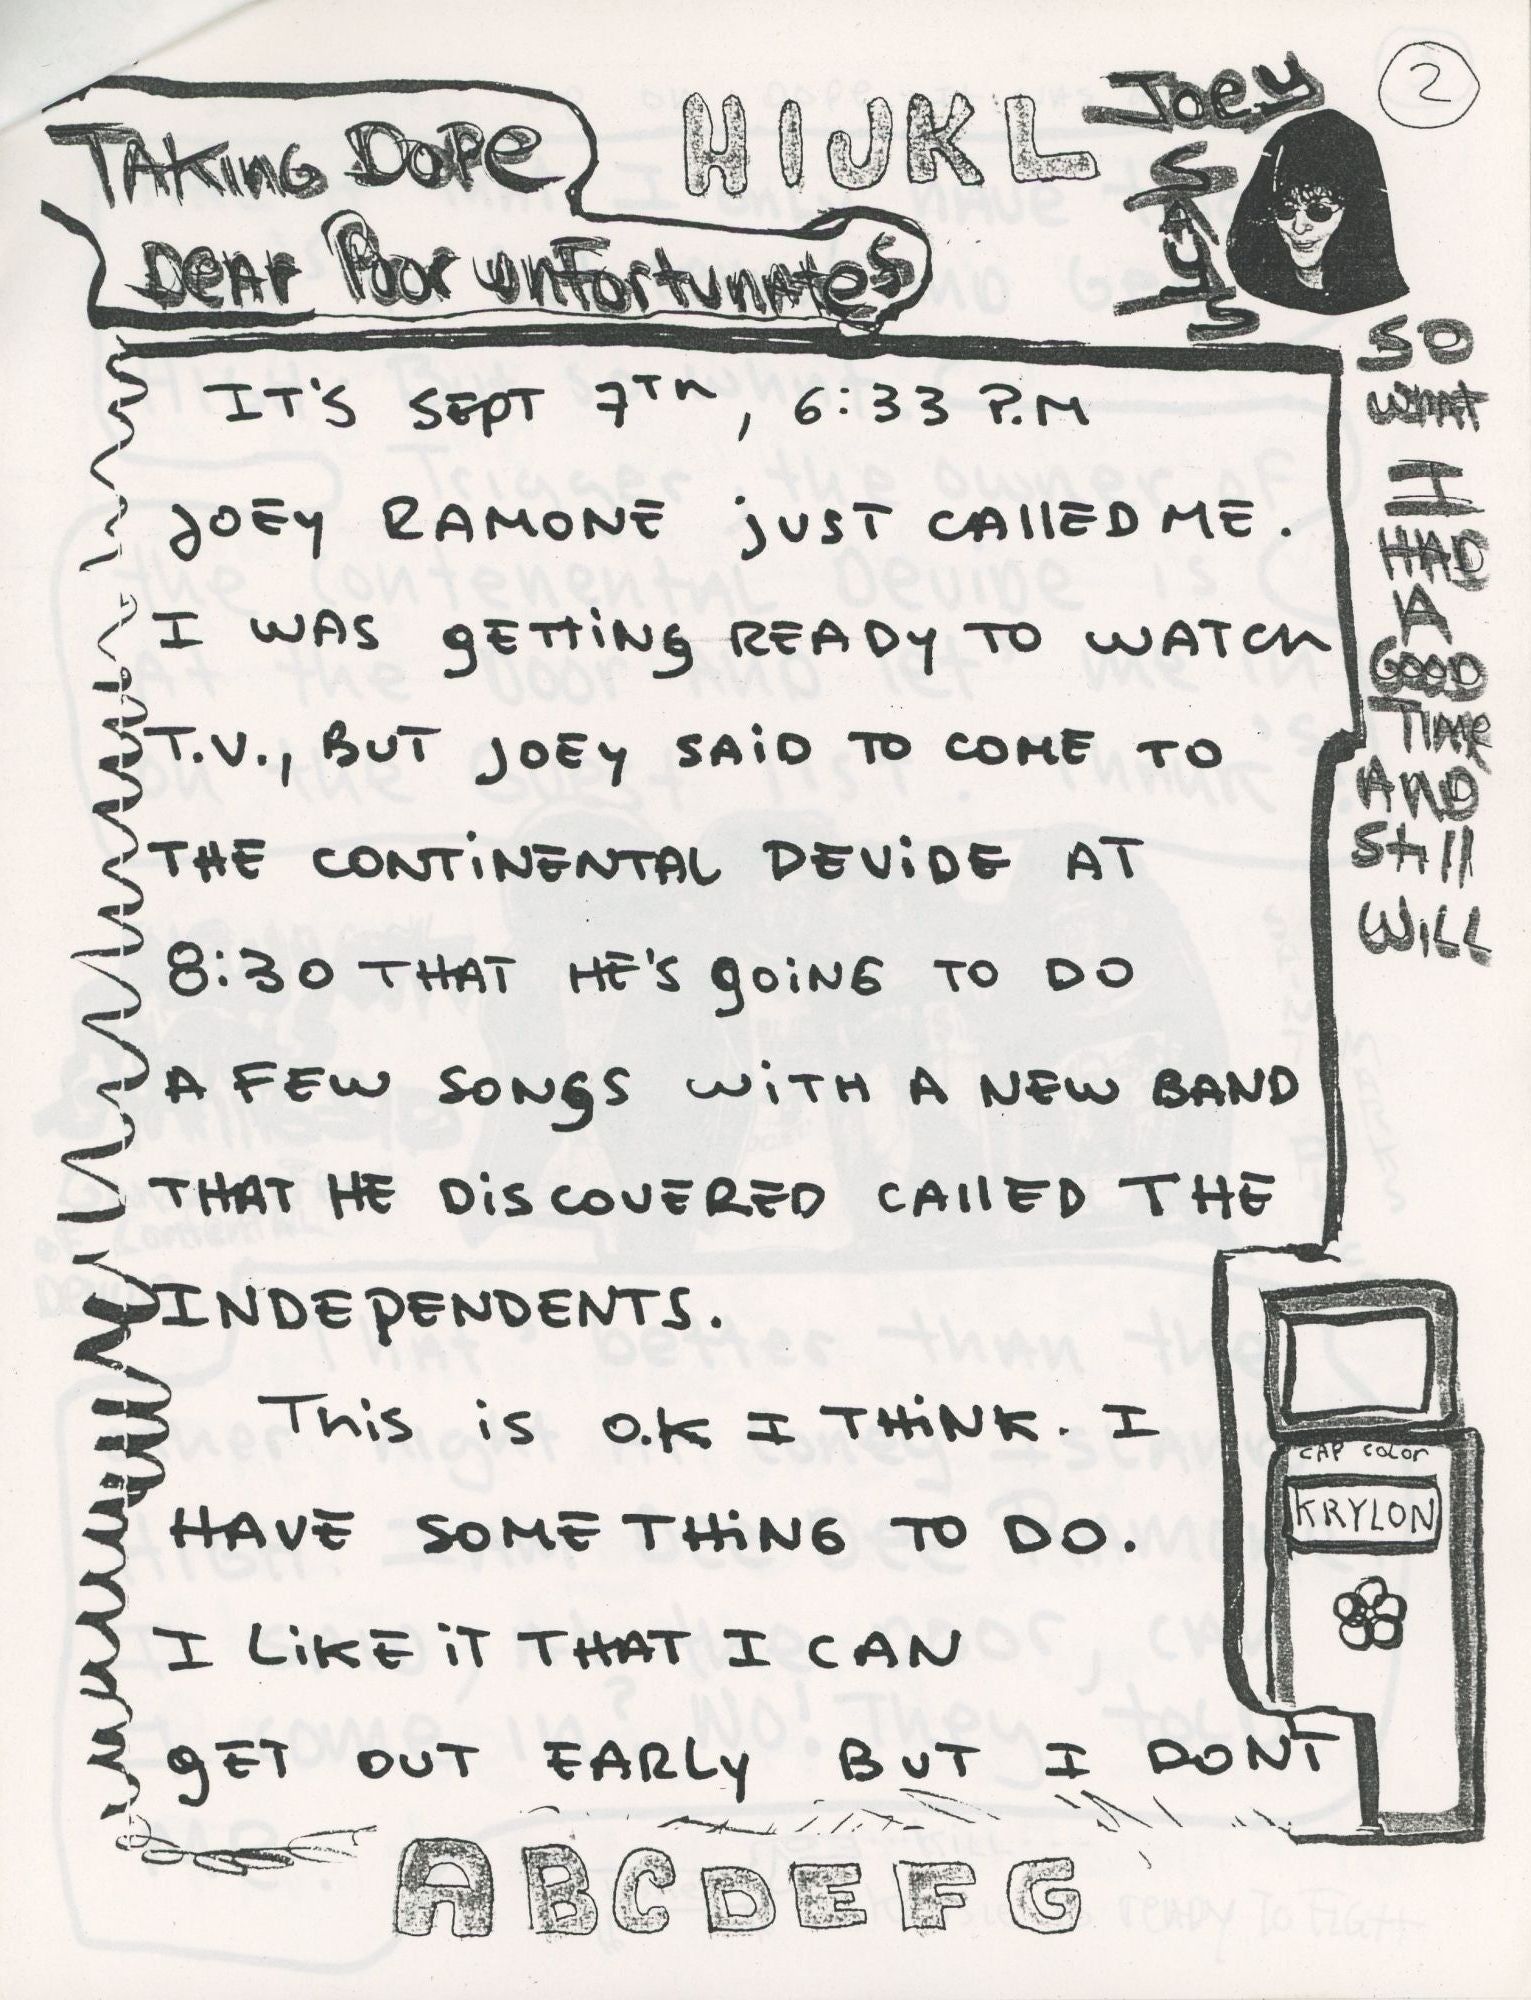 2
TAKING DOPE
DEAR POOR UNFORTUNATES
HIJKL
JOEY
SAYS
SO
WHAT
I
HAD
A
GOOD
TIME
AND
STILL
WILL
IT'S SEPT 7TH, 6:33 P.M
JOEY RAMONE JUST CALLED ME.
I WAS gETTiNg READY TO WATCH
T.V., BUT JOEY SAiD TO COME TO
THE CONTiNENTAL DEVIDE AT
8:30 THAT HE'S gOiNG TO DO
A FEW SONgS WiTH A NEW BAND
THAT HE DiSCOVERED CALLED THE
INDEPENDENTS.
This is O.K I THiNK. I
HAVE SOME THiNG TO DO.
I LiKE iT THAT I CAN
gET OUT EARLY BUT I DONT
CAP COLOR
KRYLON
ABCDEFG